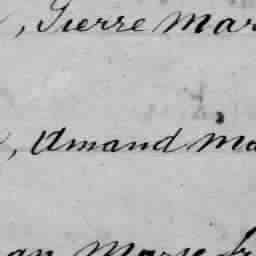 , Pierre Mar
, Amand Ma
an Marie Jr